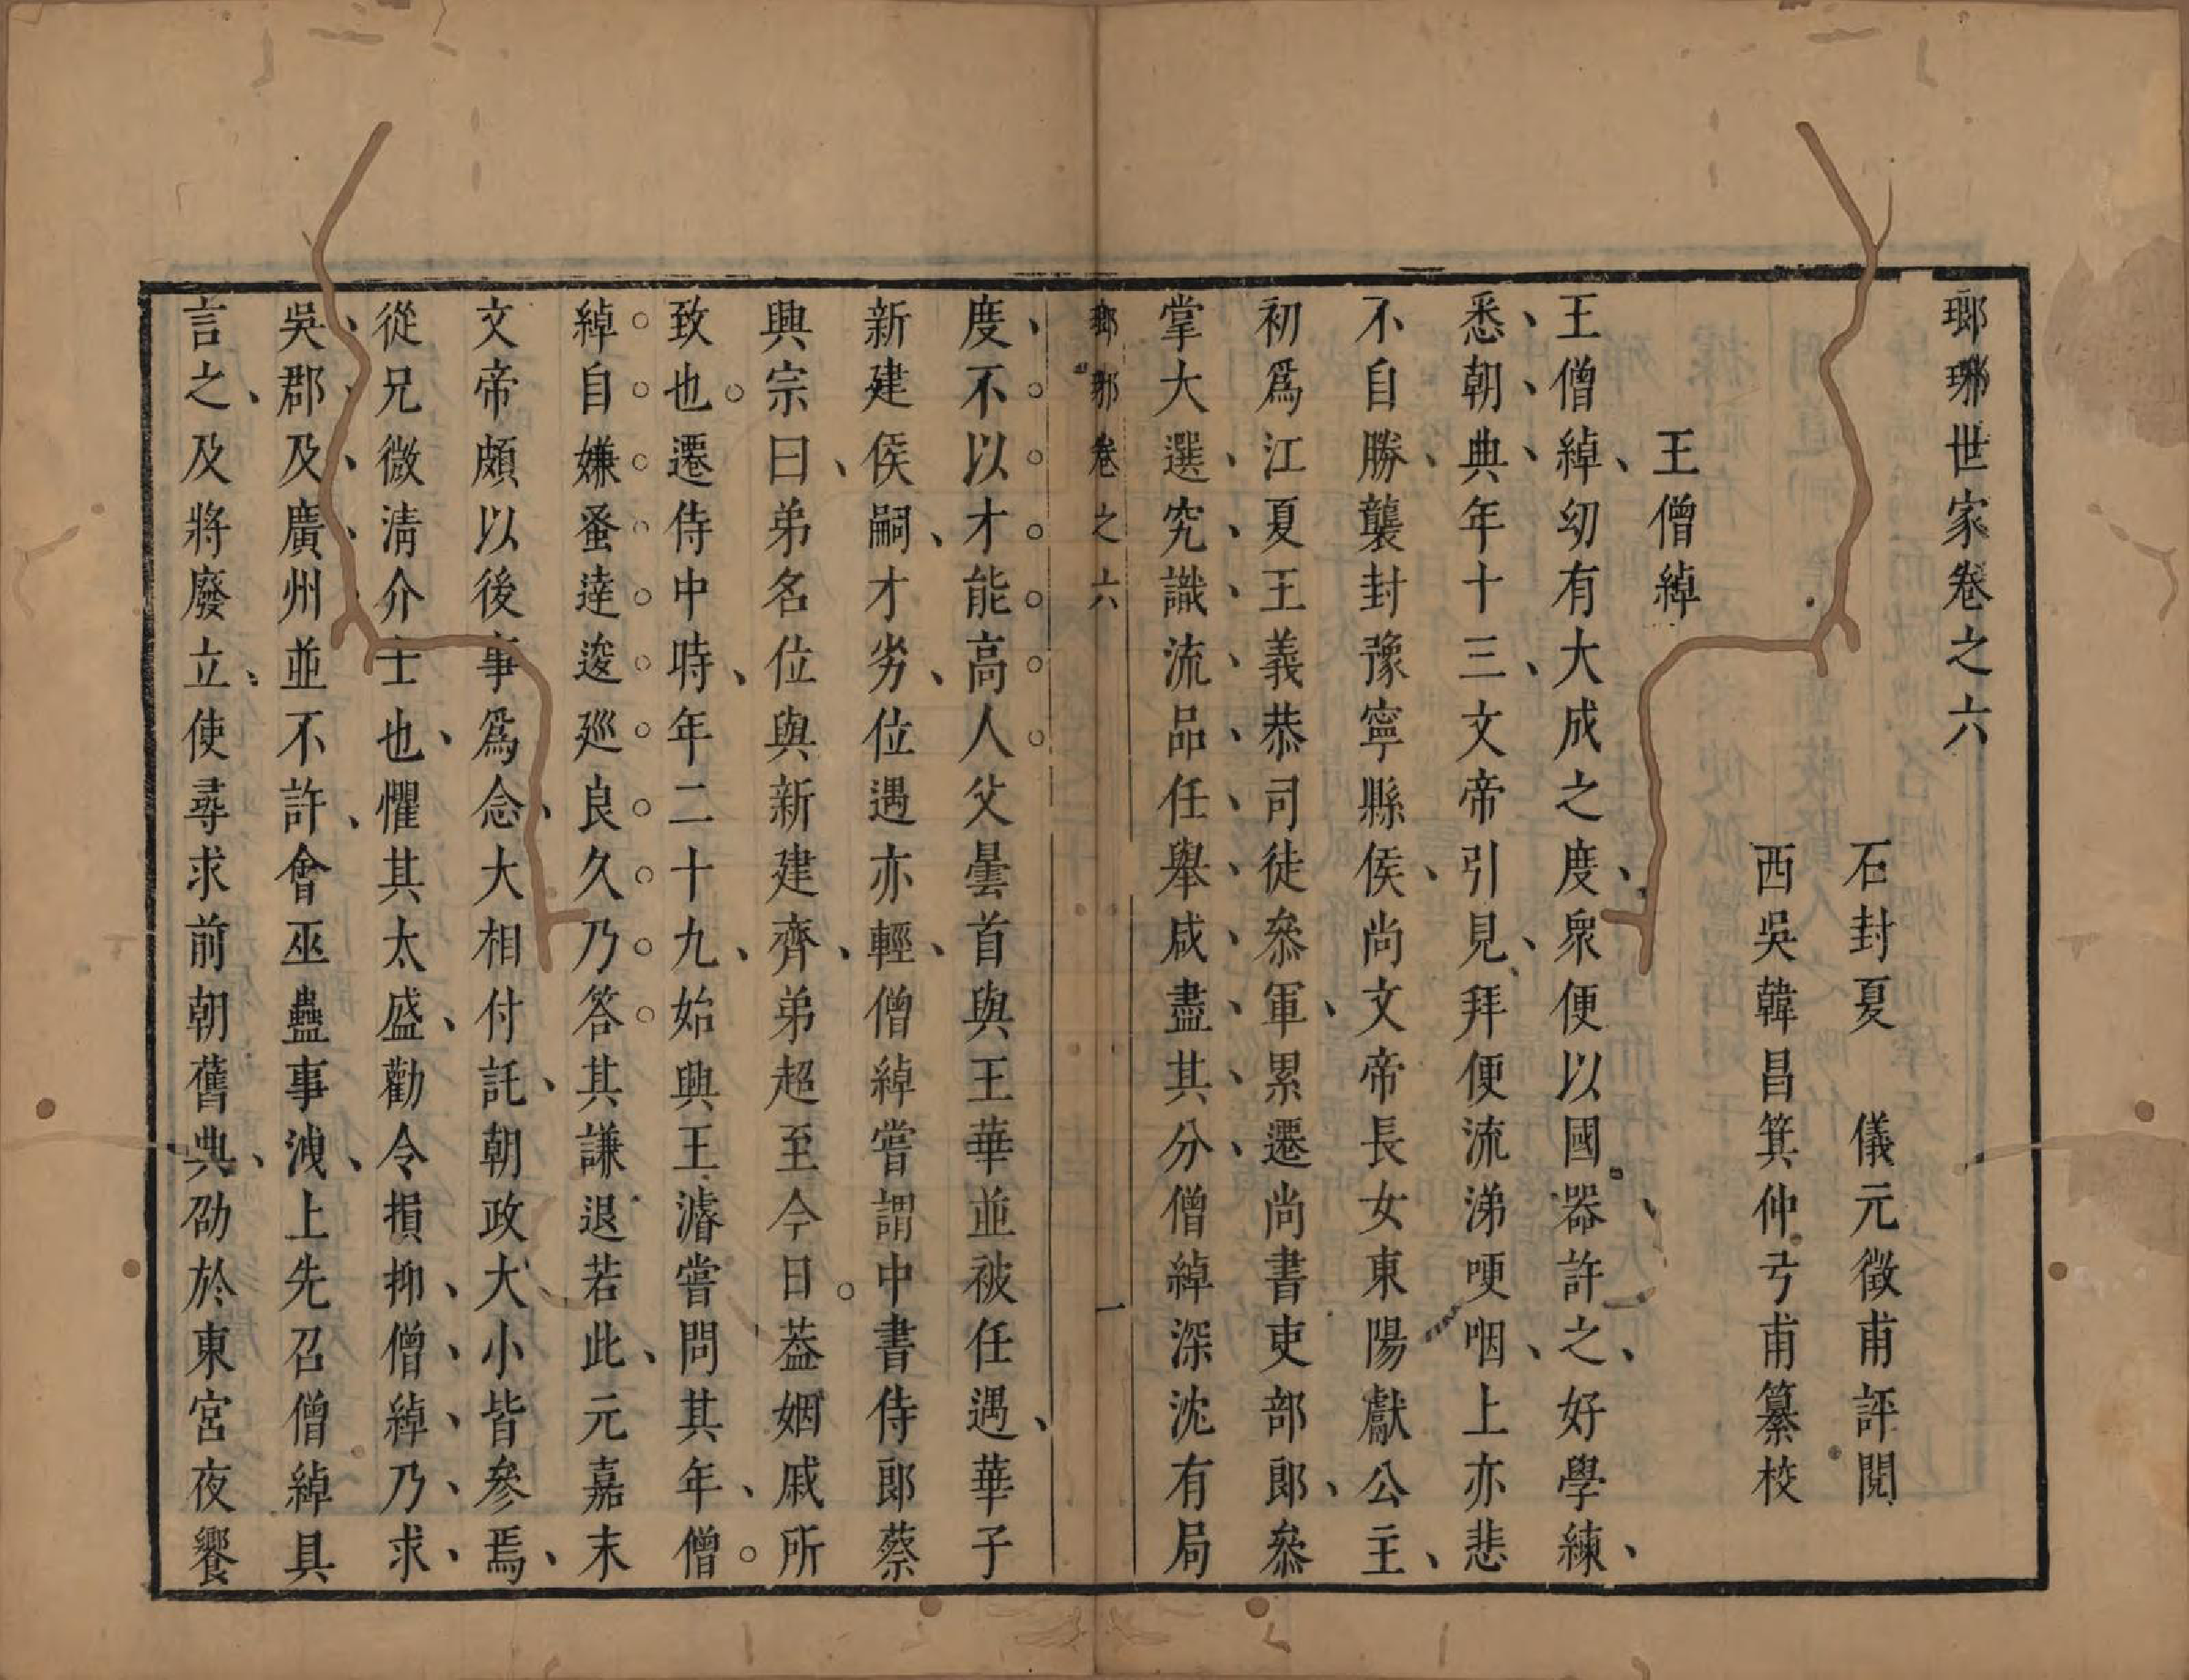 瑯琊世家卷之六
石封夏　儀元徵甫評閱
西吳韓昌箕仲弓甫纂校
王僧綽
王僧綽、幼有大成之度、衆便以國器許之、好學練、
悉、朝、典、年十三、文帝引見、拜便流涕哽咽、上亦悲
不自勝、襲封豫寧縣侯、尚文帝長女東陽獻公主、
初爲江夏王義恭司徒叅軍、累遷尚書吏部郎、叅
掌大選、究、識、流、品、任、舉、咸、盡、其、分、僧綽深沈有局
瑯琊　卷之六　一
度、不以才能高人父曇首與王華並被任遇、華子
新建侯嗣、才劣、位遇亦輕、僧綽嘗謂中書侍郎蔡
興宗曰、弟名位與新建齊、弟超至今日。葢姻戚所
致也。遷侍中時、年二十九、始興王濬嘗問其年、僧
綽自嫌蚤達逡巡良久乃答其謙退若此、元嘉末
文帝頗以後事爲念、大相付託、朝政大小皆參焉、
從兄微清介士也、懼其太盛、勸令損抑、僧、綽、乃、求、
吳、郡、及、廣、州、並不許、會巫蠱事洩、上先召僧綽具
言之、及將廢立、使尋求前朝舊典、劭於東宮夜饗